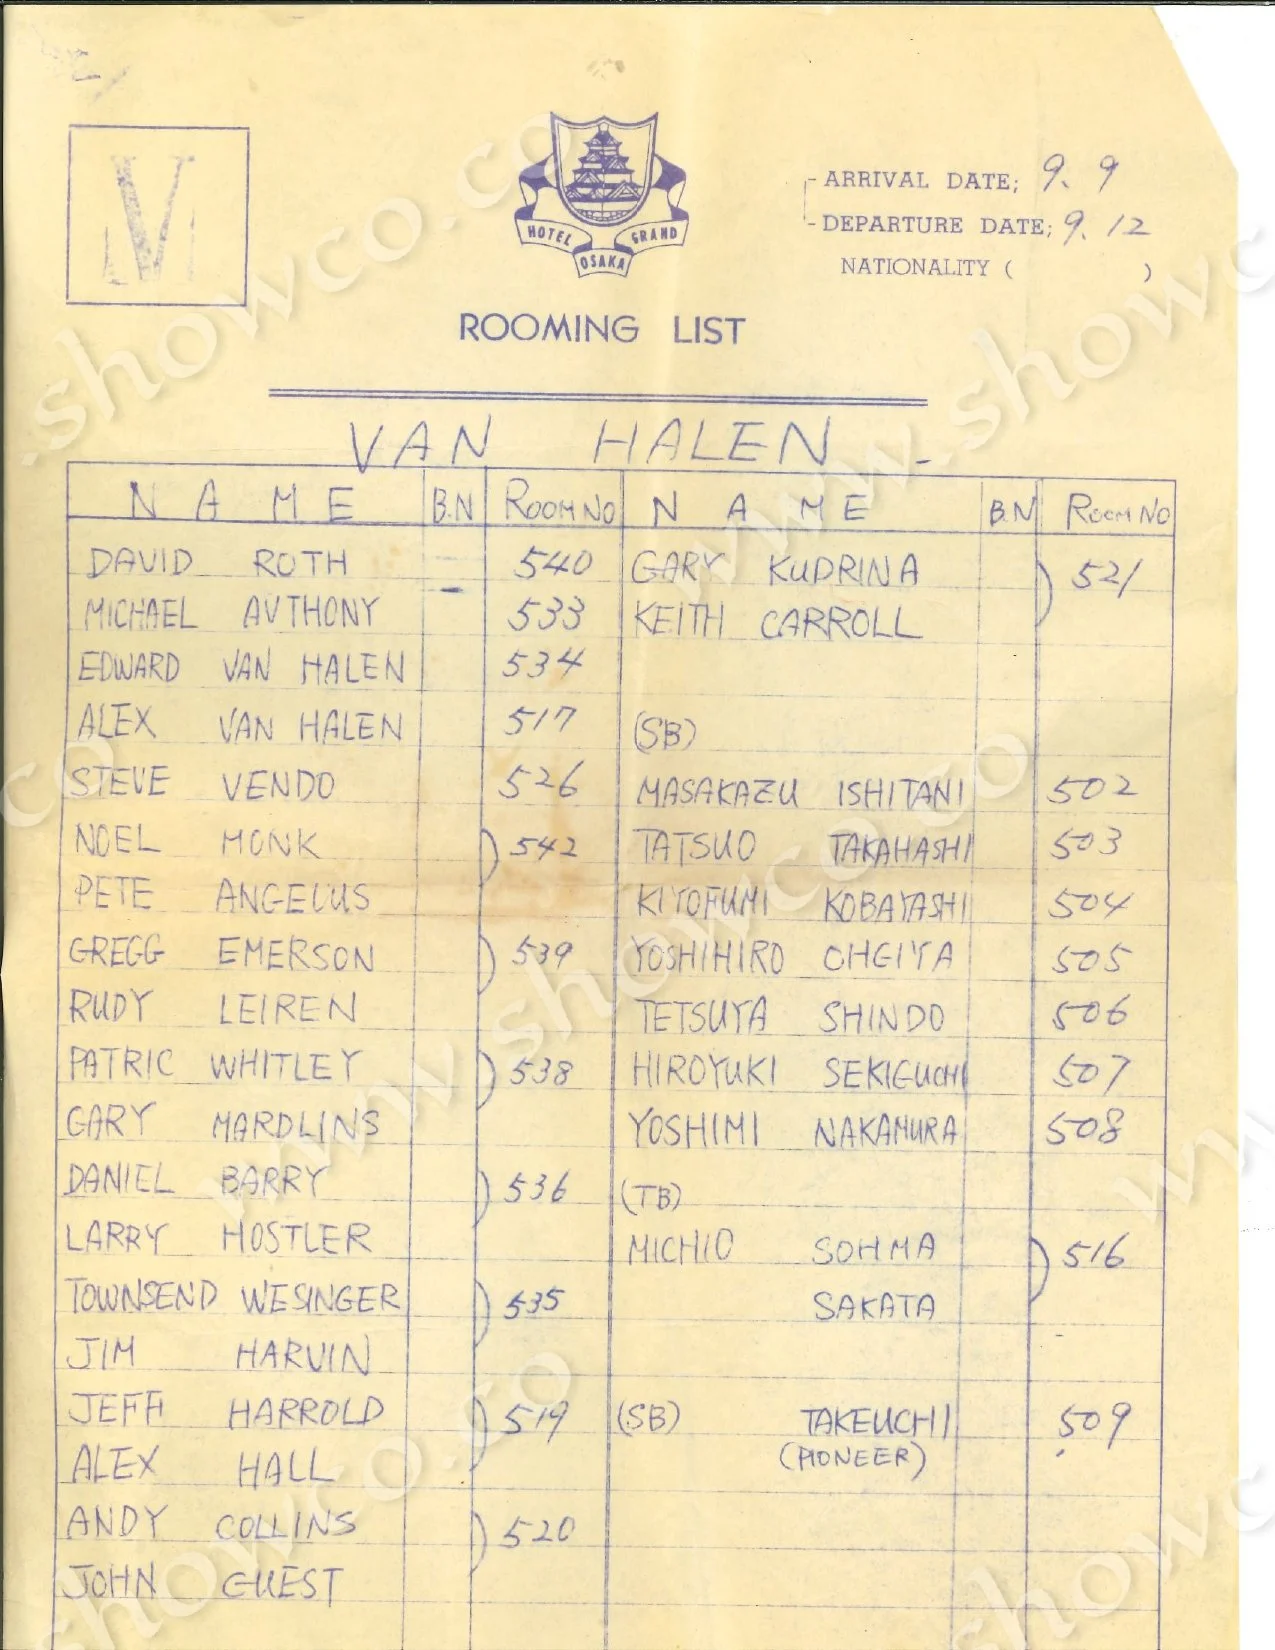 V
HOTEL GRAND
OSAKA
- ARRIVAL DATE; 9. 9
- DEPARTURE DATE; 9. 12
NATIONALITY ( )
ROOMING LIST
VAN HALEN
NAME B.N ROOM NO NAME B.N ROOM NO
DAVID ROTH 540 GARY KUDRINA 521
MICHAEL AVTHONY 533 KEITH CARROLL
EDWARD VAN HALEN 534
ALEX VAN HALEN 517 (SB)
STEVE VENDO 526 MASAKAZU ISHITANI 502
NOEL MONK 542 TATSUO TAKAHASHI 503
PETE ANGELUS KIYOFUMI KOBAYASHI 504
GREGG EMERSON 539 YOSHIHIRO OHGIYA 505
RUDY LEIREN TETSUYA SHINDO 506
PATRIC WHITLEY 538 HIROYUKI SEKIGUCHI 507
GARY MARDLINS YOSHIMI NAKAMURA 508
DANIEL BARRY 536 (TB)
LARRY HOSTLER MICHIO SOHMA 516
TOWNSEND WESINGER 535 SAKATA
JIM HARVIN
JEFF HARROLD 519 (SB) TAKEUCHI 509
ALEX HALL (PIONEER)
ANDY COLLINS 520
JOHN GUEST
www.showco.co